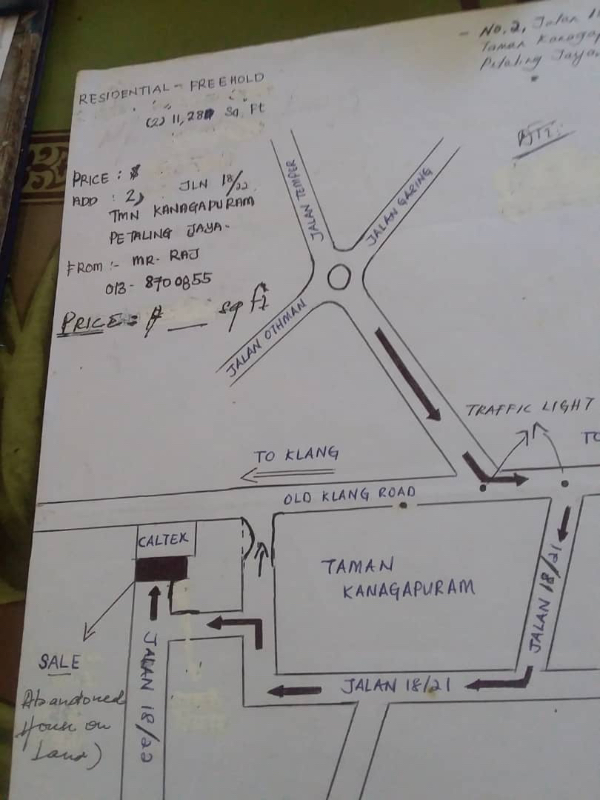 - No. 2, Jalan
Taman Kanagap
Petaling Jaya
RESIDENTIAL - FREEHOLD
(2) 11,287 Sq. Ft
PRICE : $
ADD : 2) JLN 18/22
TMN KANAGAPURAM
PETALING JAYA-
FROM :- MR- RAJ
013- 8700855
PRICE = $ ___ sq ft
JALAN TEMPLER
JALAN GASING
JALAN OTHMAN
TRAFFIC LIGHT
TO
TO KLANG
OLD KLANG ROAD
CALTEX
TAMAN
KANAGAPURAM
JALAN 18/21
JALAN 18/21
JALAN 18/22
SALE
Abandoned
House on
Land)